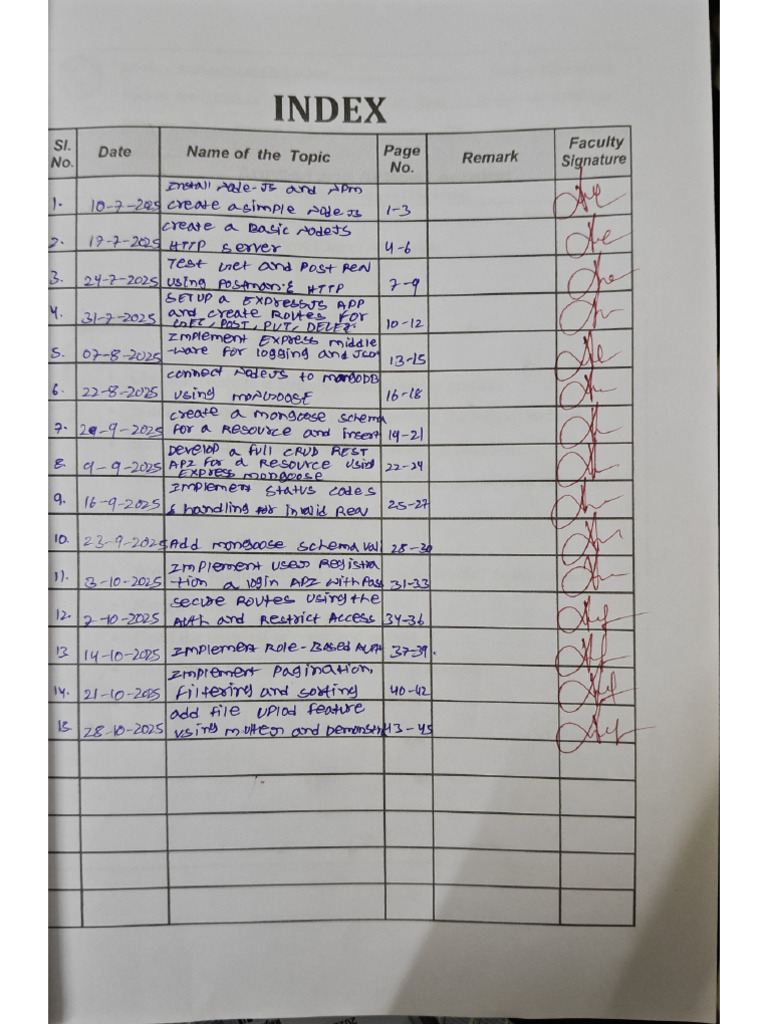 INDEX
Sl. No. Date Name of the Topic Page No. Remark Faculty Signature
Install Node-JS and NPM
1. 10-7-2025 create a simple NodeJS 1-3
create a Basic NodeJS
2. 17-7-2025 HTTP server 4-6
Test Get and Post Req
3. 24-7-2025 using Postman & HTTP 7-9
SETUP a EXPRESSJS APP
4. 31-7-2025 and create Routes for 10-12
GET, POST, PUT, DELET
Implement Express middle
5. 07-8-2025 -ware for logging and JSON 13-15
connect NodeJS to mongoDB
6. 22-8-2025 using MONGOOSE 16-18
create a mongoose schema
7. 2-9-2025 for a Resource and insert 19-21
Develop a full CRUD REST
8. 9-9-2025 API for a Resource using 22-24
EXPRESS MONGOOSE
Implement status codes
9. 16-9-2025 & handling for invalid Req 25-27
10. 23-9-2025 Add mongoose schema vali 28-30
Implement user Registra
11. 3-10-2025 -tion a login API with Pass 31-33
secure Routes using the
12. 7-10-2025 AUTH and Restrict Access 34-36
13 14-10-2025 Implement Role-Based Auth 37-39.
Implement Pagination,
14. 21-10-2025 filtering and sorting 40-42
add file uplod feature
15. 28-10-2025 using multer and Demonstr 43-45